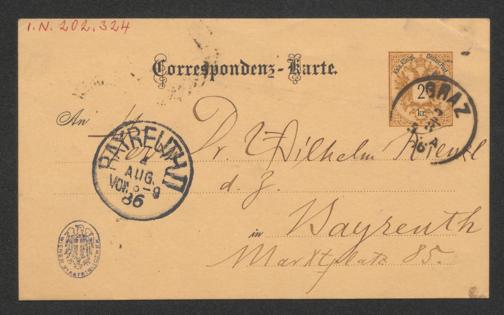 I.N. 202.324
Correspondenz-Karte.
2 kr.
GRAZ
An
Dr. Wilhelm Kienzl
d. Z.
in Bayreuth
Marktplatz 85.
BAYREUTH II
4
AUG.
VOR. 8-9
86